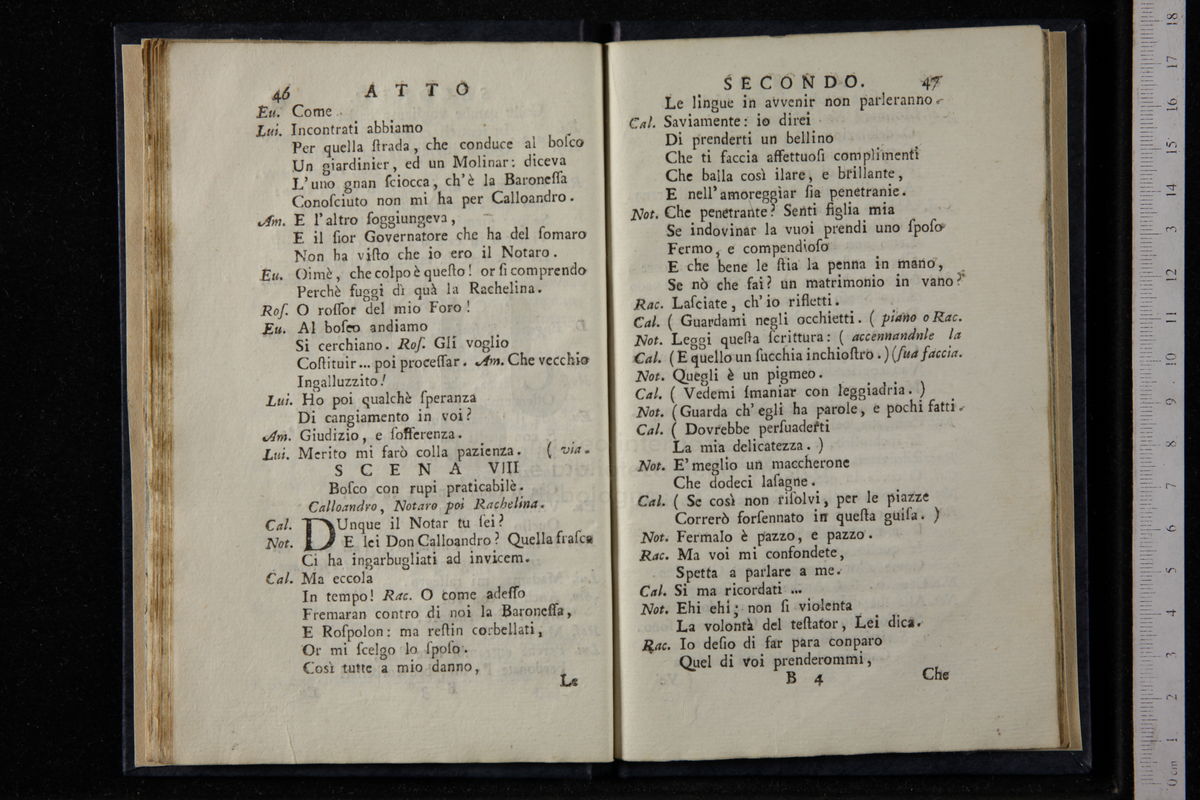 46 ATTO
Eu. Come
Lui. Incontrati abbiamo
Per quella ſtrada, che conduce al boſco
Un giardinier, ed un Molinar: diceva
L'uno gnan ſciocca, ch'è la Baroneſſa
Conoſciuto non mi ha per Calloandro.
Am. E l'altro ſoggiungeva,
E il ſior Governatore che ha del ſomaro
Non ha viſto che io ero il Notaro.
Eu. Oimè, che colpo è queſto! or ſi comprendo
Perchè fuggi di quà la Rachelina.
Roſ. O roſſor del mio Foro!
Eu. Al boſco andiamo
Si cerchiano. Roſ. Gli voglio
Coſtituir... poi proceſſar. Am. Che vecchio
Ingalluzzito!
Lui. Ho poi qualchè ſperanza
Di cangiamento in voi?
Am. Giudizio, e ſofferenza.
Lui. Merito mi farò colla pazienza. ( via.
SCENA VIII
Boſco con rupi praticabilè.
Calloandro, Notaro poi Rachelina.
Cal. DUnque il Notar tu ſei?
Not. E lei Don Calloandro? Quella fraſca
Ci ha ingarbugliati ad invicem.
Cal. Ma eccola
In tempo! Rac. O come adeſſo
Fremaran contro di noi la Baroneſſa,
E Roſpolon: ma reſtin corbellati,
Or mi ſcelgo lo ſpoſo.
Così tutte a mio danno,
Le
SECONDO. 47
Le lingue in avvenir non parleranno.
Cal. Saviamente: io direi
Di prenderti un bellino
Che ti faccia affettuoſi complimenti
Che balla così ilare, e brillante,
E nell'amoreggiar ſia penetranie.
Not. Che penetrante? Senti figlia mia
Se indovinar la vuoi prendi uno ſpoſo
Fermo, e compendioſo
E che bene le ſtia la penna in mano,
Se nò che fai? un matrimonio in vano?
Rac. Laſciate, ch'io rifletti.
Cal. ( Guardami negli occhietti. ( piano o Rac.
Not. Leggi queſta ſcrittura: ( accennandnle la
Cal. (E quello un ſucchia inchioſtro.) (ſua faccia.
Not. Quegli è un pigmeo.
Cal. ( Vedemi ſmaniar con leggiadria. )
Not. (Guarda ch'egli ha parole, e pochi fatti.
Cal. ( Dovrebbe perſuaderti
La mia delicatezza. )
Not. E' meglio un maccherone
Che dodeci laſagne.
Cal. ( Se così non riſolvi, per le piazze
Correrò forſennato in queſta guiſa. )
Not. Fermalo è pazzo, e pazzo.
Rac. Ma voi mi confondete,
Spetta a parlare a me.
Cal. Si ma ricordati ...
Not. Ehi ehi; non ſi violenta
La volontà del teſtator, Lei dica.
Rac. Io deſio di far para conparo
Quel di voi prenderommi,
B 4 Che